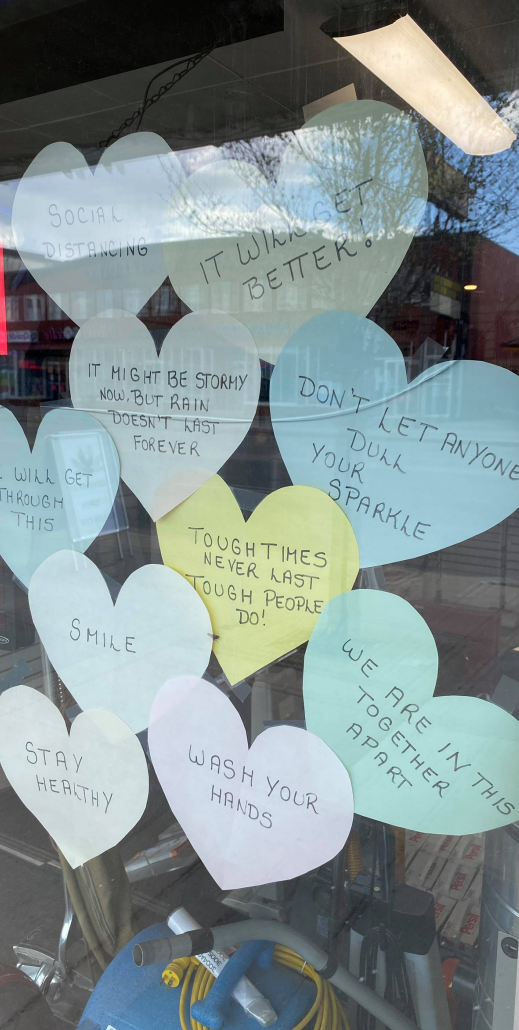 SOCIAL
DISTANCING
IT WILL GET
BETTER!
IT MIGHT BE STORMY
NOW, BUT RAIN
DOESN'T LAST
FOREVER
DON'T LET ANYONE
DULL
YOUR
SPARKLE
WILL GET
THROUGH
THIS
TOUGH TIMES
NEVER LAST
TOUGH PEOPLE
DO!
SMILE
WE ARE IN THIS
TOGETHER
APART
STAY
HEALTHY
WASH YOUR
HANDS